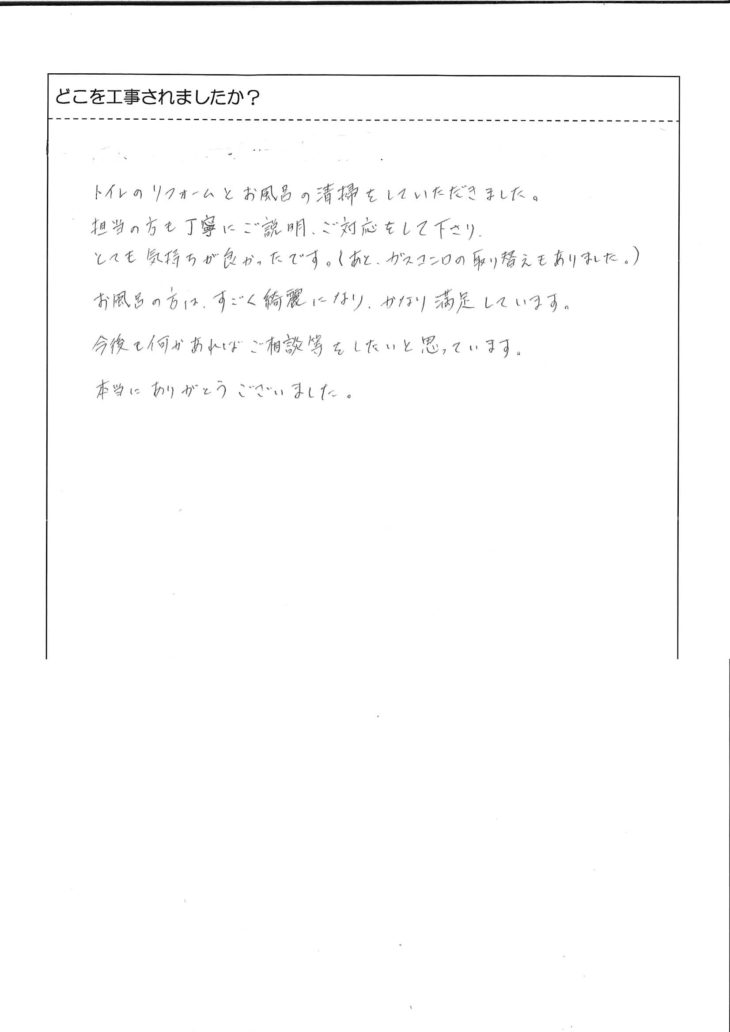 どこを工事されましたか？
トイレのリフォームとお風呂の清掃をしていただきました。
担当の方も丁寧にご説明、ご対応をして下さり、
とても気持ちが良かったです。(あと、ガスコンロの取り替えもありました。)
お風呂の方は、すごく綺麗になり、かなり満足しています。
今後も何かあればご相談等をしたいと思っています。
本当にありがとうございました。